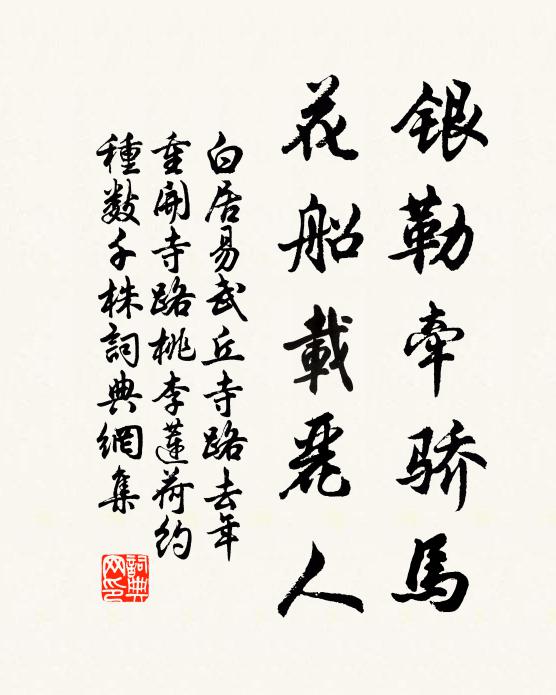 银勒牵骄馬
花船載麗人
白居易武丘寺路去年
重開寺路桃李蓮荷約
種数千株詞典網集
詞典
网印